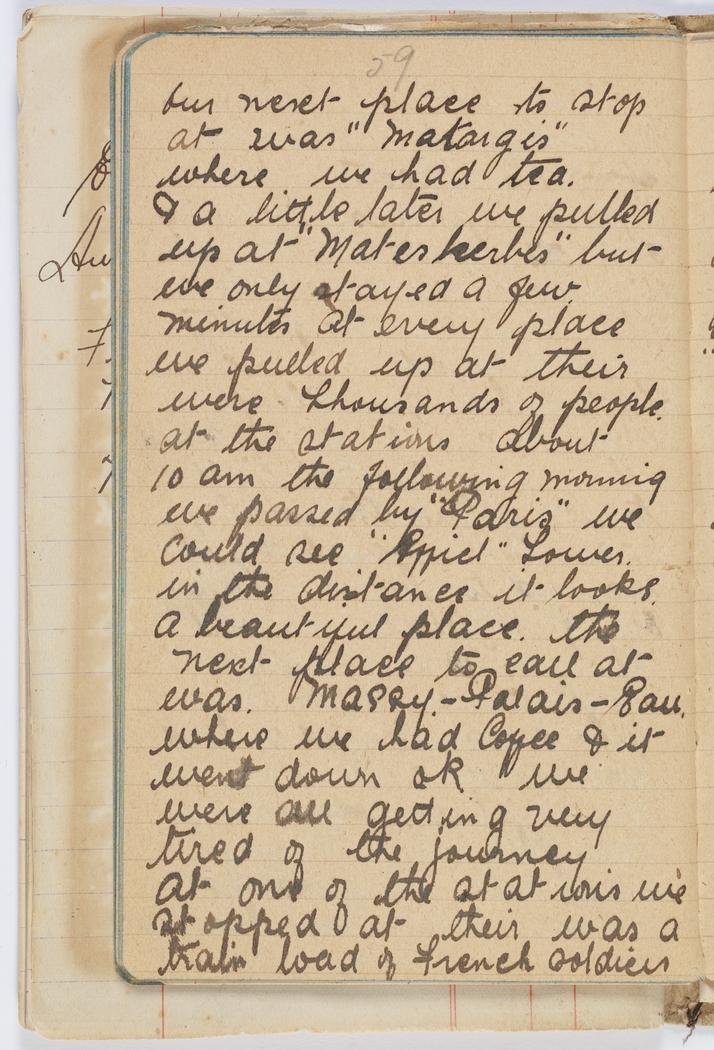 59
our next place to stop
at was "Matargis"
where we had tea.
& a little later we pulled
up at "Mateskerbes" but
we only stayed a few
minutes at every place
we pulled up at their
were thousands of people.
at the stations about
10 am the following morning
we passed by "Paris" we
could see "Eppiel" Tower.
in the distance it looks.
a beautiful place. the
next place to call at
was. Massy.-Palais-Eau.
where we had Coffee & it
went down ok we
were all getting very
tired of the journey
at one of the stations we
stopped at their was a
train load of French soldiers